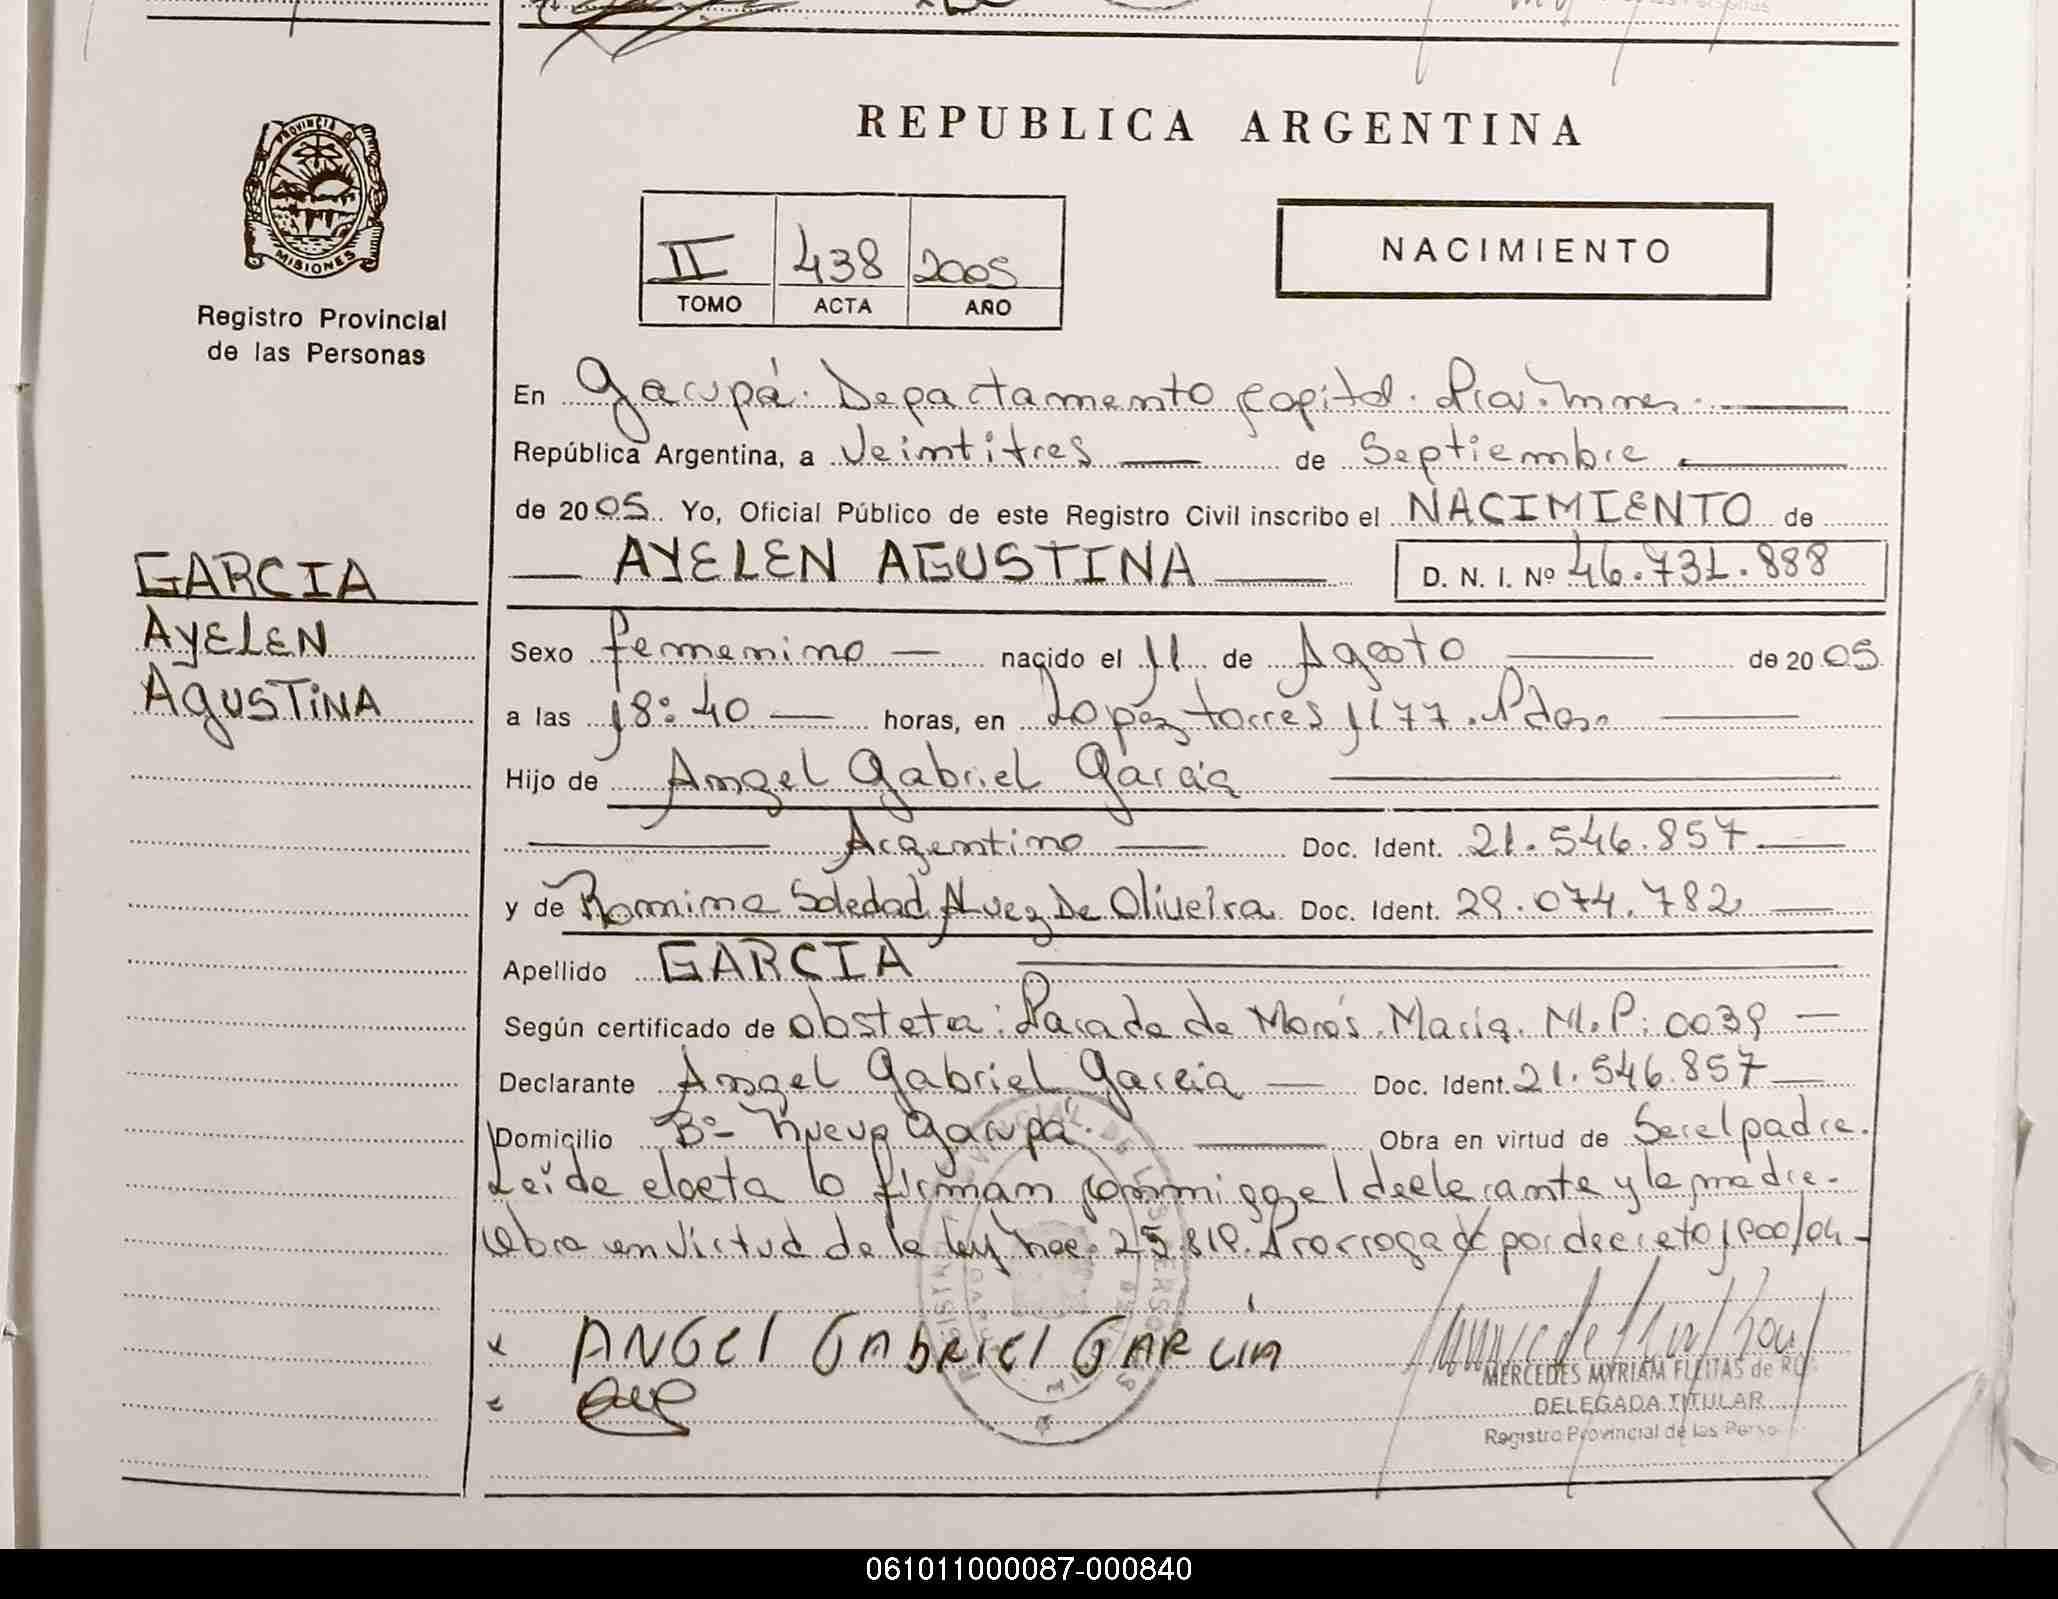 REPUBLICA ARGENTINA
PROVINCIA D
MISIONES
Registro Provincial
de las Personas
II 438 2005
TOMO ACTA AÑO
NACIMIENTO
En Garupá. Departamento Capital. Pcia. Mnes.
República Argentina, a Veintitres de Septiembre
de 2005. Yo, Oficial Público de este Registro Civil inscribo el NACIMIENTO de
AYELEN AGUSTINA D. N. I. Nº 46.731.888
GARCIA
AYELEN
AGUSTINA
Sexo femenino nacido el 11 de Agosto de 2005
a las 18:40 horas, en Lopez torres 1177. Pdas.
Hijo de Angel Gabriel Garcia
Argentino Doc. Ident. 21.546.857
y de Romina Soledad Alvez De Oliveira Doc. Ident. 29.074.782
Apellido GARCIA
Según certificado de obstetra: Parada de Morós. María. M.P: 0039
Declarante Angel Gabriel Garcia Doc. Ident. 21.546.857
Domicilio Bº- Nuevo Garupá. Obra en virtud de Ser el padre.
Leída el acta la firman conmigo el declarante y la madre.
Obra en virtud de la ley nac. 25.819. Prorrogada por decreto 1900/04
x ANGEL GABRIEL GARCIA
MERCEDES MYRIAM FLEITAS de
DELEGADA TITULAR
Registro Provincial de las Perso
061011000087-000840